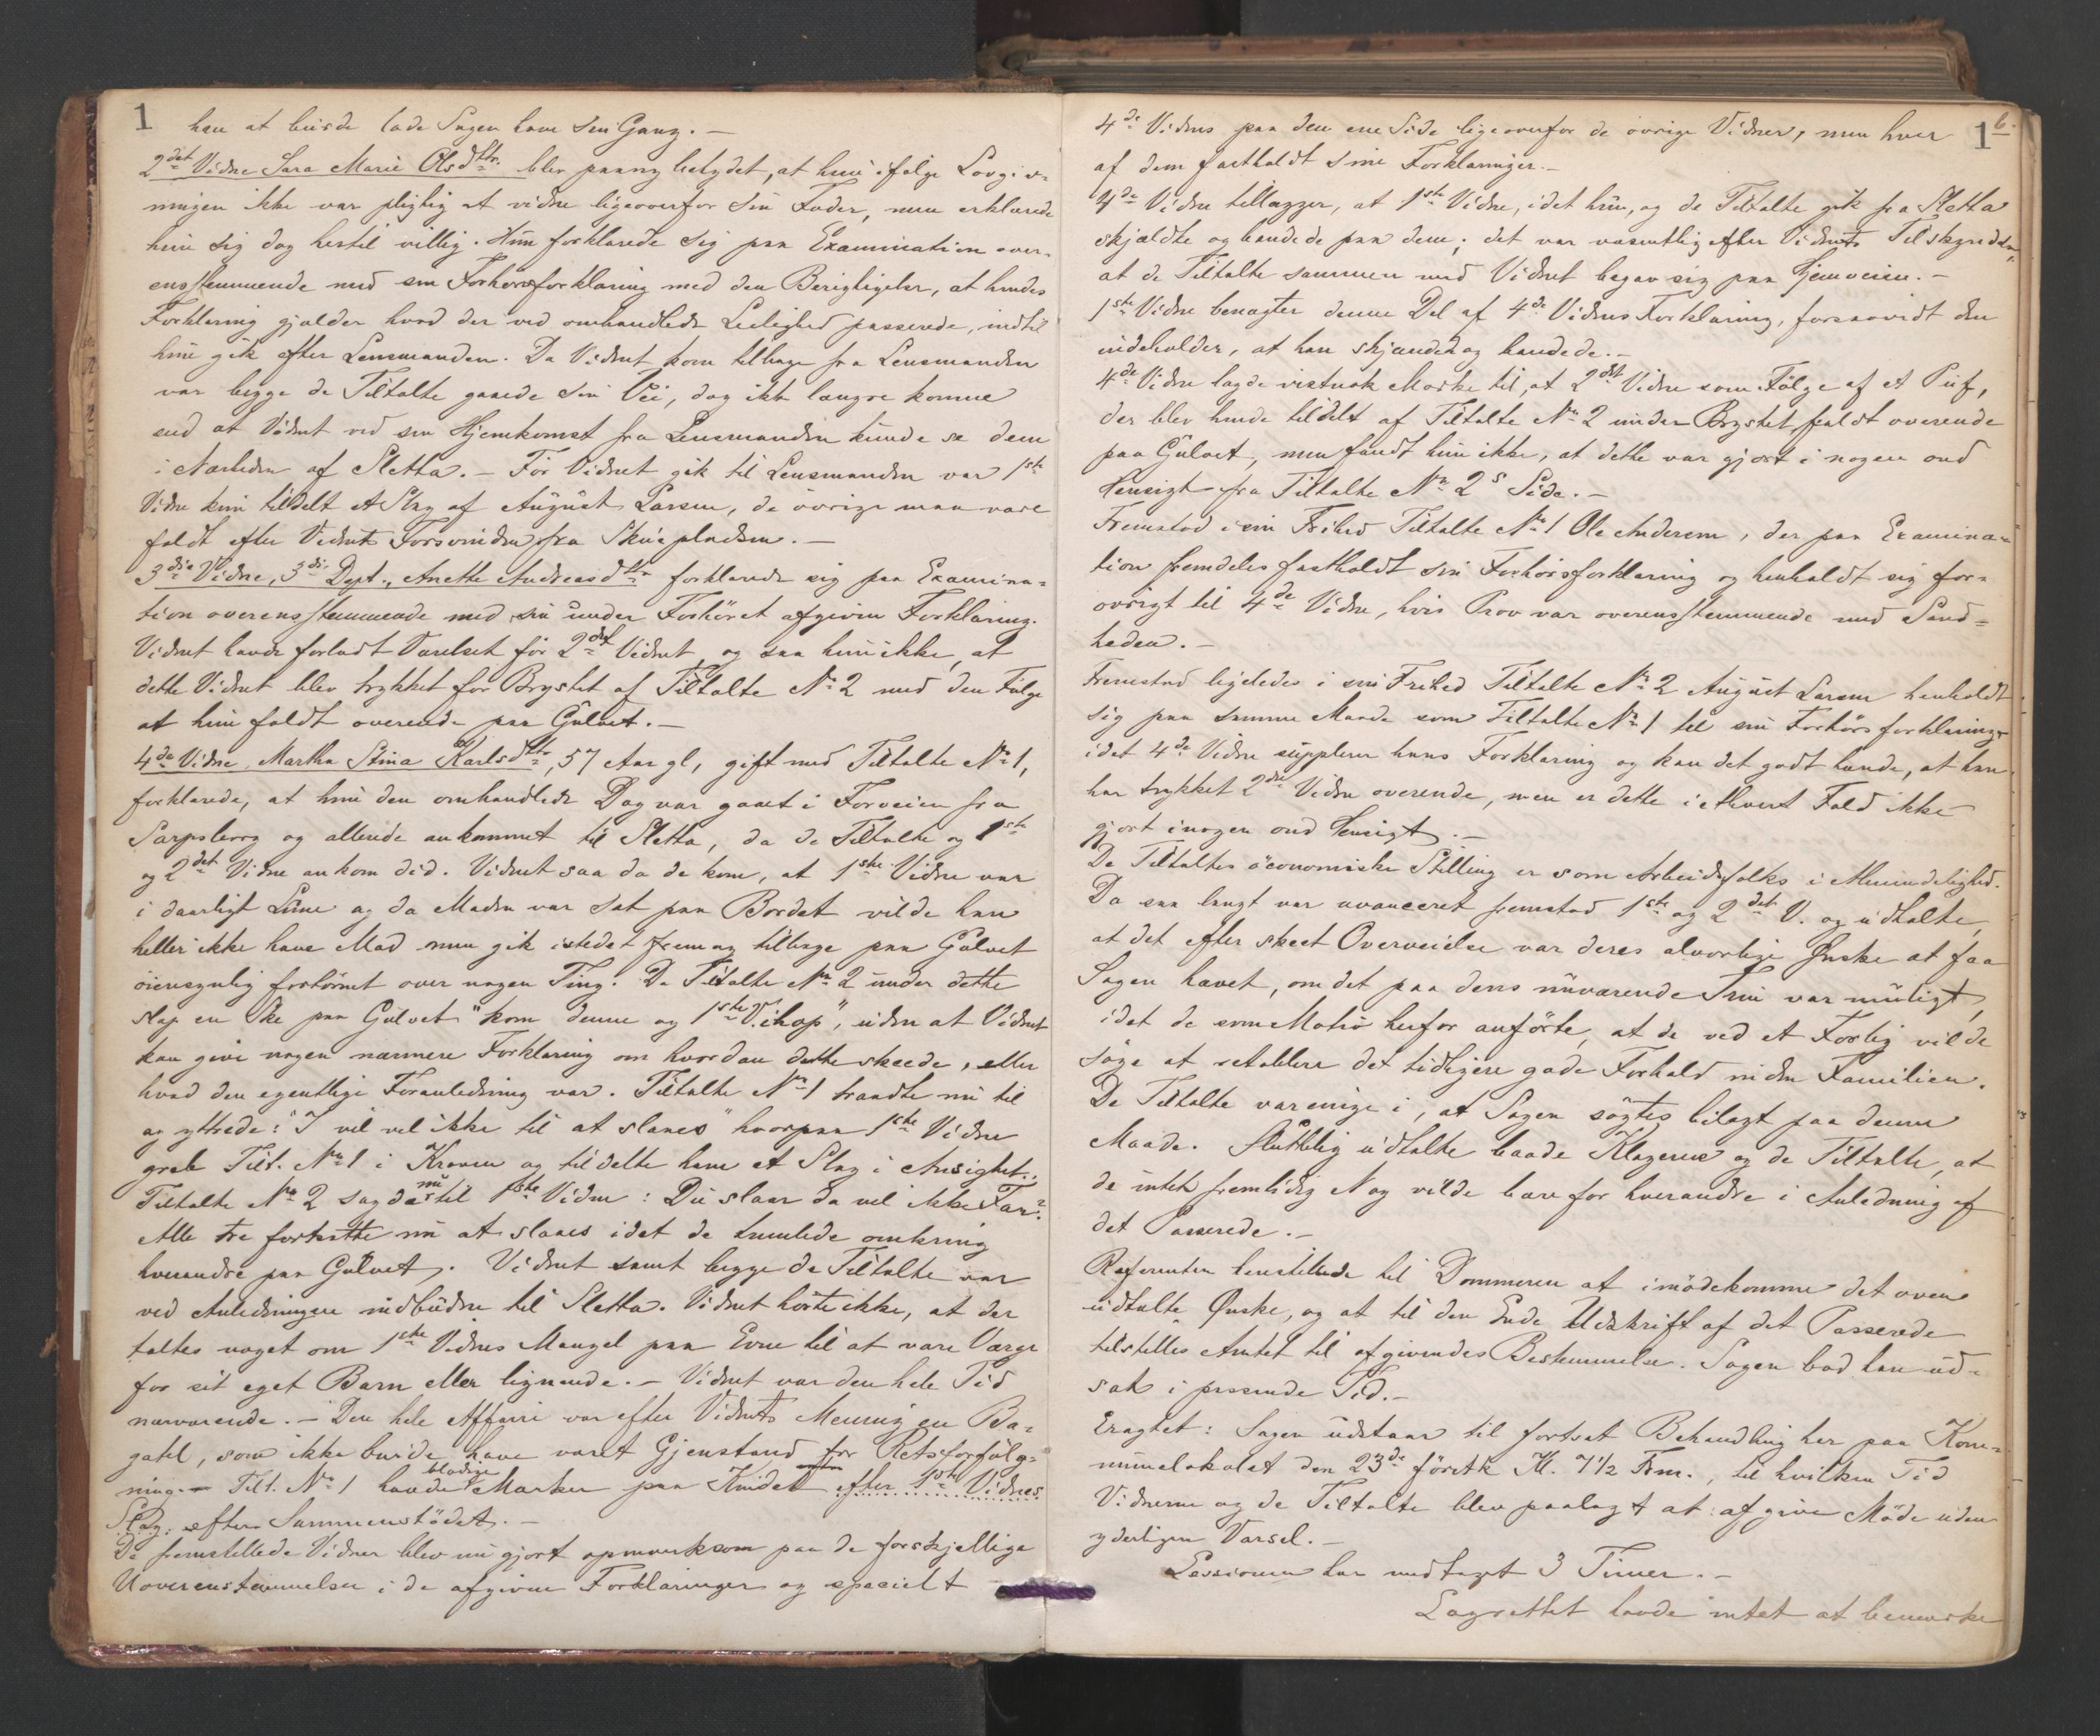 1
han at burde lade Sagen have sin Gang. —
2det Vidne Sara Marie Olsdttr. blev paany betydet, at hun ifølge Lovgiv-
ningen ikke var pligtig at vidne ligeoverfor sin Fader, men erklærede
hun sig dog hertil villig. Hun forklarede sig paa Examination over-
ensstemmende med sin Forhørsforklaring med den Berigtigelse, at hendes
Forklaring gjælder hvad der ved omhandlede Leilighed passerede, indtil
hun gik efter Lensmanden. Da Vidnet kom tilbage fra Lensmanden
var begge de Tiltalte gaaede sin Vei, dog ikke længre komne
end at Vidnet ved sin Hjemkomst fra Lensmanden kunde se dem
i Nærheden af Sletta. — Før Vidnet gik til Lensmanden var 1ste
Vidne kun tildelt et Slag af August Larsen, de øvrige maa være
faldt efter Vidnets Forsvinden fra Skuepladsen. —
3die Vidne, 3die Dept., Anette Andreasdttr forklarede sig paa Examina-
tion overensstemmende med sin under Forhøret afgivne Forklaring.
Vidnet havde forladt Værelset før 2det Vidnet, og saa hun ikke, at
dette Vidnet blev trykket for Brystet af Tiltalte No 2 med den Følge
at hun faldt overende paa Gulvet. —
4de Vidne, Martha Stina Karlsdttr, 57 Aar gl, gift med Tiltalte No 1,
forklarede, at hun den omhandlede Dag var gaaet i Forveien fra
Sarpsborg og allerede ankommet til Sletta, da de Tiltalte og 1ste
og 2det Vidne ankom did. Vidnet saa da de kom, at 1ste Vidne var
i daarligt Lune og da Maden var sat paa Bordet vilde han
heller ikke have Mad men gik istedet frem og tilbage paa Gulvet
øiensynlig fortørnet over nogen Ting. Da Tiltalte No 2 under dette
slap en Ske paa Gulvet "kom denne og 1ste V. ihop", uden at Vidnet
kan give nogen nærmere Forklaring om hvordan dette skeede, eller
hvad den egentlige Foranledning var. Tiltalte No 1 traadte nu til
og yttrede: "I vil vel ikke til at slaaes" hvorpaa 1ste Vidne
greb Tilt. No 1 i Kraven og tildelte ham et Slag i Ansigtet.
Tiltalte No 2 sagde nu til 1ste Vidne: Du slaar da vel ikke Far?
Alle tre fortsatte nu at slaaes idet de tumlede omkring
hverandre paa Gulvet. Vidnet samt begge de Tiltalte var
ved Anledningen indbuden til Sletta. Vidnet hørte ikke, at der
taltes noget om 1ste Vidnes Mangel paa Evne til at være Værge
for sit eget Barn eller lignende. — Vidnet var den hele Tid
nærværende. — Den hele Affaire var efter Vidnets Mening en Ba-
gatel, som ikke burde have været Gjenstand for Retsforfølg-
ning. — Tilt. No 1 havde blodige Mærker paa Kindet efter 1ste Vidnes
Slag. efter Sammenstødet. —
De fremstillede Vidner blev nu gjort opmærksom paa de forskjellige
Uoverensstemmelser i de afgivne Forklaringer og specielt
1
6.
4de Vidnes paa den ene Side ligeoverfor de øvrige Vidner, men hver
af dem fastholdt sine Forklaringer. —
4de Vidne tillægger, at 1ste Vidne, idet hun, og de Tiltalte gik fra Sletta
skjældte og bandede paa dem; det var væsentlig efter Vidnets Tilskyndelse,
at de Tiltalte sammen med Vidnet begav sig paa Hjemveien. —
1ste Vidne benægter denne Del af 4de Vidnes Forklaring, forsaavidt den
indeholder, at han skjændte og bandede. —
4de Vidne lagde vistnok Mærke til, at 2det Vidne som Følge af et Puf,
der blev hende tildelt af Tiltalte No 2 under Brystet, faldt overende
paa Gulvet, men fandt hun ikke, at dette var gjort i nogen ond
Hensigt fra Tiltalte No 2s Side. —
Fremstod i sin Frihed Tiltalte No 1 Ole Andersen, der paa Examina-
tion fremdeles fastholdt sin Forhørsforklaring og henholdt sig for-
øvrigt til 4de Vidne, hvis Prov var overensstemmende med Sand-
heden. —
Fremstod ligeledes i sin Frihed Tiltalte No 2 August Larsen henholdt
sig paa samme Maade som Tiltalte No 1 til sin Forhørsforklaring
idet 4de Vidne supplerer hans Forklaring og kan det godt hænde, at han
har trykket 2det Vidne overende, men er dette i ethvert Fald ikke
gjort i nogen ond Hensigt. —
De Tiltaltes öconomiske Stilling er som Arbeidsfolks i Almindelighed.
Da saa langt var avanceret fremstod 1ste og 2det V. og udtalte,
at det efter skeet Overveielse var deres alvorlige Ønske at faa
Sagen hævet, om det paa dens nuværende Trin var muligt,
idet de som Motiv herfor anførte, at de ved et Forlig vilde
søge at retablere det tidligere gode Forhold inden Familien.
De Tiltalte var enige i, at Sagen søgtes bilagt paa denne
Maade. Sluttelig udtalte baade Klagerne og de Tiltalte, at
de intet fremtidig Nag vilde bære for hverandre i Anledning af
det Passerede. —
Referenten henstillede til Dommeren at imødekomme det oven
udtalte Ønske, og at til den Ende Udskrift af det Passerede
tilstilles Amtet til afgivendes Bestemmelse. Sagen bad han ud-
sat i passende Tid. —
Eragtet: Sagen udstaar til fortsat Behandling her paa Kom-
munelokalet den 23de förstk Kl. 7 1/2 Fm., til hvilken Tid
Vidnerne og de Tiltalte blev paalagt at afgive Møde uden
yderligere Varsel. —
Sessionen har medtaget 3 Timer. —
Lagrettet havde intet at bemærke